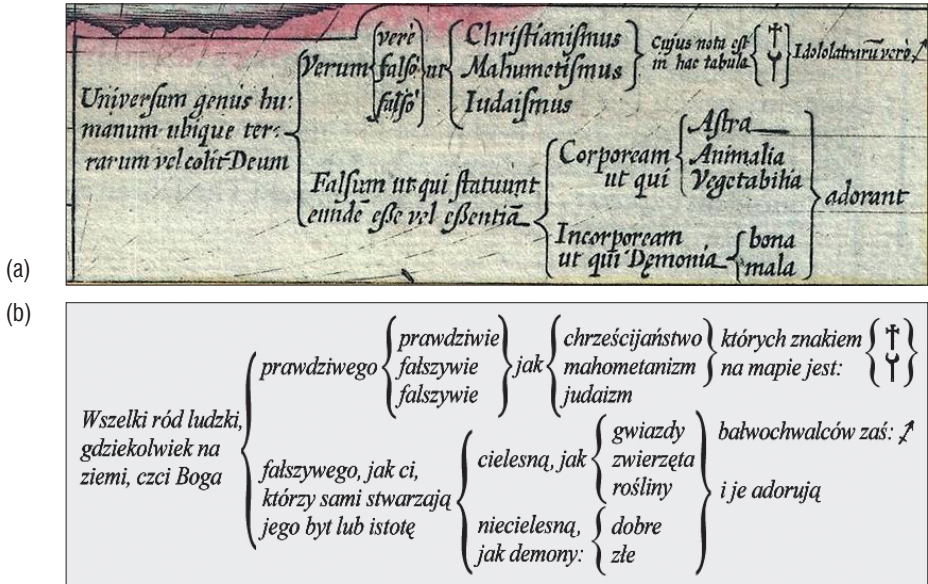 (a)
Universum genus hu:
manum ubique ter-
rarum vel colit Deum
Verum
verè
falsò
falsò
ut
Christianismus
Mahumetismus
Iudaismus
Cujus nota est
in hac tabula
Idololatrarū verò
Falsum ut qui statuunt
eundē esse vel essentiā
Corpoream
ut qui
Astra
Animalia
Vegetabilia
Incorpoream
ut qui Dęmonia
bona
mala
adorant
(b)
Wszelki ród ludzki,
gdziekolwiek na
ziemi, czci Boga
prawdziwego
prawdziwie
fałszywie
fałszywie
jak
chrześcijaństwo
mahometanizm
judaizm
których znakiem
na mapie jest:
bałwochwalców zaś:
fałszywego, jak ci,
którzy sami stwarzają
jego byt lub istotę
cielesną, jak
gwiazdy
zwierzęta
rośliny
niecielesną,
jak demony:
dobre
złe
i je adorują